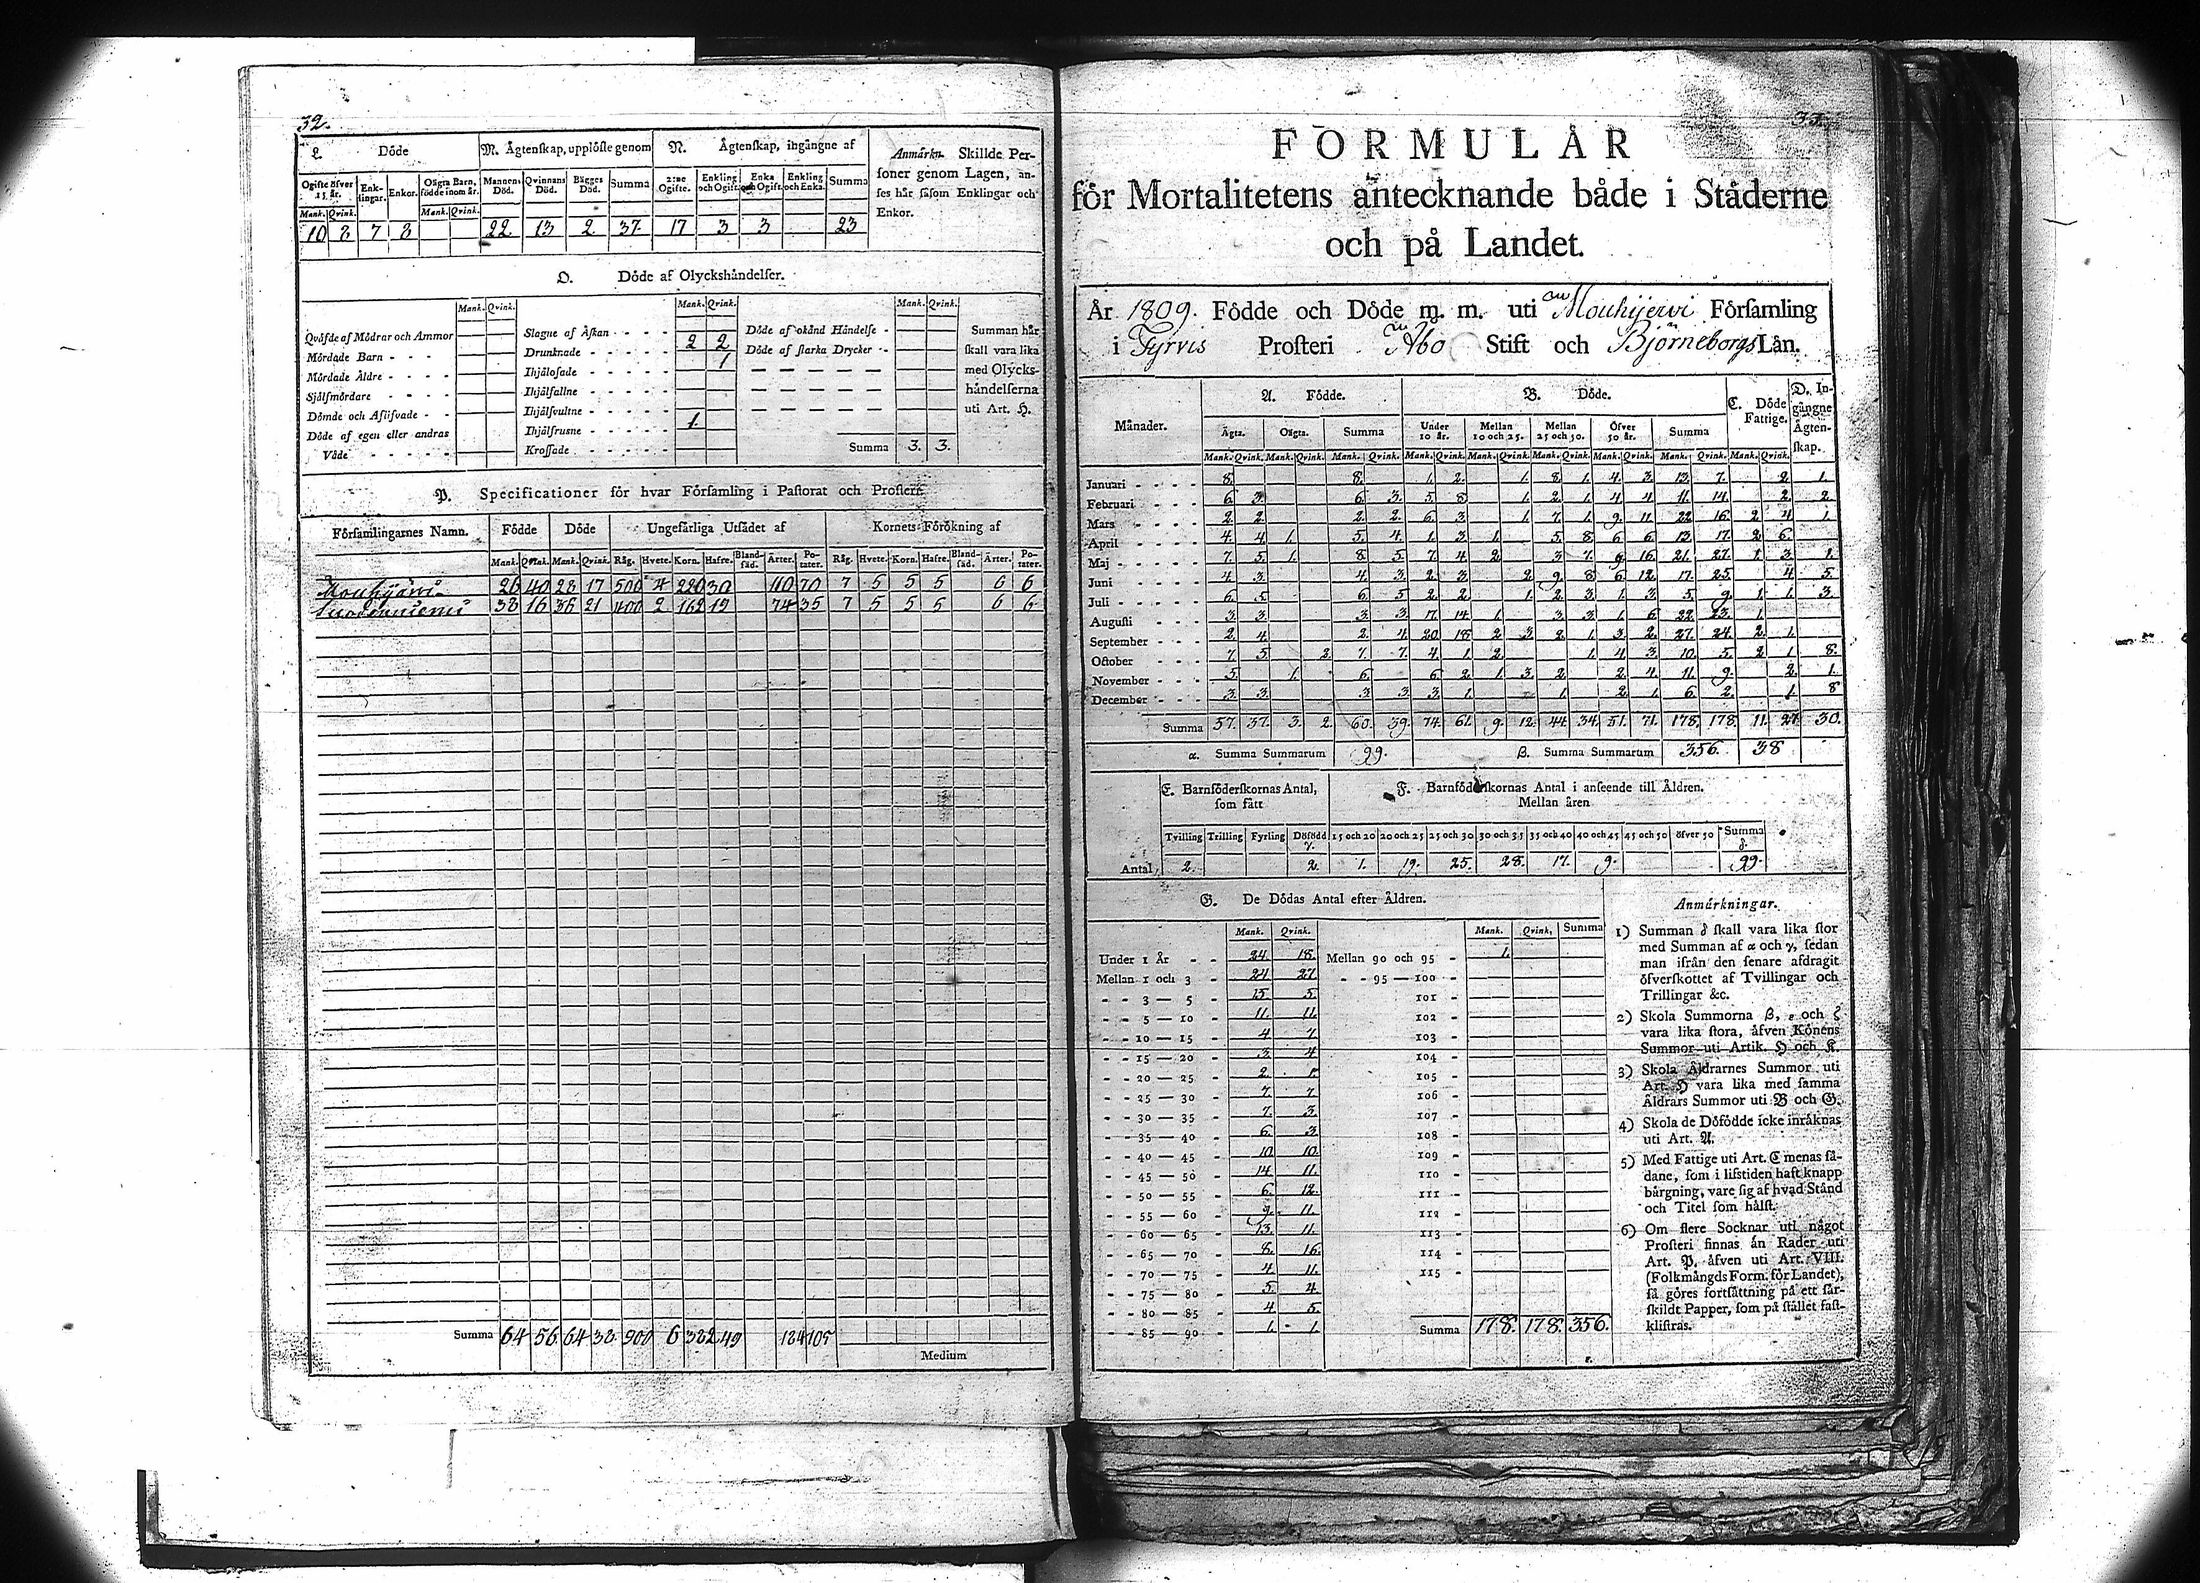 32.
L. Döde
M. Ägtenskap, upplöste genom
N. Ägtenskap, ingångne af
Anmärkn. Skillde Personer
soner genom Lagen, an-
ses här såsom Enklingar och
Enkor.
Ogifte öfver 15 år. Enklingar. Enkor. Oägta Barn, födde inom år. Mannens Död. Qvinnans Död. Bägges Död. Summa 2:ne Ogifte. Enkling och Ogift. Enka och Ogift. Enkling och Enka. Summa
Mank. Qvink. Mank. Qvink.
10 8 7 8 22 13 2 37. 17 3 3 23
O. Döde af Olyckshändelser.
Mank. Qvink. Mank. Qvink. Mank. Qvink.
Qväfde af Mödrar och Ammor
Mördade Barn - - -
Mördade Äldre - - - -
Självmördare - - - -
Dömde och Aflifvade - -
Döde af egen eller andras
Våde - - - - -
Slagne af Åskan - - - -
Drunknade - - - - - 2 2
Ihjälosade - - - - - 1
Ihjälfallne - - - - -
Ihjälsvultne - - - - -
Ihjälfrusne - - - - - 1.
Krossade - - - - -
Döde af okänd Händelse -
Döde af starka Drycker - -
Summa 3. 3.
Summan här
skall vara lika
med Olycks-
händelserna
uti Art. H.
P. Specificationer för hvar Församling i Pastorat och Prosteri.
Församlingarnes Namn. Födde Döde Ungefärliga Utsädet af Kornets Förökning af
Mank. Qvink. Mank. Qvink. Råg. Hvete. Korn. Hafre. Blandsäd. Ärter. Potater. Råg. Hvete. Korn. Hafre. Blandsäd. Ärter. Potater.
Mouhijärvi 26 40 28 17 500 4 220 30 110 70 7 5 5 5 6 6
Suodenniemi 38 16 36 21 400 2 162 19 74 35 7 5 5 5 6 6
Summa 64 56 64 38 900 6 382 49 184 105
Medium
FORMULÄR
för Mortalitetens antecknande både i Städerne
och på Landet.
År 1809. Födde och Döde m. m. uti Mouhijerwi Församling
i Tyrvis Prosteri Åbo Stift och Björneborgs Län.
Månader. A. Födde. B. Döde. C. Döde Fattige. D. Ingångne Ägtenskap.
Ägta. Oägta. Summa Under 10 år. Mellan 10 och 25. Mellan 25 och 50. Öfver 50 år. Summa
Mank. Qvink. Mank. Qvink. Mank. Qvink. Mank. Qvink. Mank. Qvink. Mank. Qvink. Mank. Qvink. Mank. Qvink. Mank. Qvink.
Januari - - - - 8. 8. 1. 2. 1. 8. 1. 4. 3. 13. 7. 2. 1.
Februari - - - 6. 3. 6. 3. 5. 8. 1. 2. 1. 4. 4. 11. 14. 2. 2.
Mars - - - 2. 2. 2. 2. 6. 3. 1. 7. 1. 9. 11. 22. 16. 2. 4. 1.
April - - - - 4. 4. 1. 5. 4. 1. 3. 1. 5. 8. 6. 6. 13. 17. 2. 6.
Maj - - - - 7. 5. 1. 8. 5. 7. 4. 2. 3. 7. 9. 16. 21. 27. 1. 3. 1.
Juni - - - 4. 3. 4. 3. 2. 3. 2. 9. 8. 6. 12. 17. 25. 4. 5.
Juli - - - - 6. 5. 6. 5. 2. 2. 1. 2. 3. 1. 3. 5. 9. 1. 1. 3.
Augusti - - - 3. 3. 3. 3. 17. 14. 1. 3. 3. 1. 6. 22. 23. 1.
September - - - 2. 4. 2. 4. 20. 18. 2. 3. 2. 1. 3. 2. 27. 24. 2. 1.
October - - - 7. 5. 2. 7. 7. 4. 1. 2. 1. 4. 3. 10. 5. 2. 1. 8.
November - - - 5. 1. 6. 6. 2. 1. 3. 2. 2. 4. 11. 9. 2. 1.
December - - - 3. 3. 3. 3. 3. 1. 1. 2. 1. 6. 2. 1. 8
Summa 57. 37. 3. 2. 60. 39. 74. 61. 9. 12. 44. 34. 51. 71. 178. 178. 11. 27. 30.
α. Summa Summarum 99. β. Summa Summarum 356. 38
E. Barnföderskornas Antal, som fått
F. Barnföderskornas Antal i anseende till Åldren.
Mellan åren
Tvilling Trilling Fyrling Döfödd γ. 15 och 20 20 och 25 25 och 30 30 och 35 35 och 40 40 och 45 45 och 50 öfver 50 Summa δ.
Antal, 2. 2. 1. 19. 25. 28. 17. 9. 99.
G. De Dödas Antal efter Åldren.
Mank. Qvink. Mank. Qvink. Summa
Under 1 År - - 24. 18. Mellan 90 och 95 - 1.
Mellan 1 och 3 - 24. 27. - - 95 — 100 -
- - 3 — 5 - 15. 5. 101 -
- - 5 — 10 - 11. 11. 102 -
- - 10 — 15 - 4. 7. 103 -
- - 15 — 20 - 3. 4. 104 -
- - 20 — 25 - 2. 1. 105 -
- - 25 — 30 - 7. 7. 106 -
- - 30 — 35 - 7. 3. 107 -
- - 35 — 40 - 6. 3. 108 -
- - 40 — 45 - 10. 10. 109 -
- - 45 — 50 - 14. 11. 110 -
- - 50 — 55 - 6. 12. 111 -
- - 55 — 60 - 9. 11. 112 -
- - 60 — 65 - 13. 11. 113 -
- - 65 — 70 - 8. 16. 114 -
- - 70 — 75 - 4. 11. 115 -
- - 75 — 80 - 5. 4.
- - 80 — 85 - 4. 5.
- - 85 — 90 - 1. 1. Summa 178. 178. 356.
Anmärkningar.
1) Summan δ skall vara lika stor
med Summan af α och γ, sedan
man ifrån den senare afdragit
öfverskottet af Tvillingar och
Trillingar &c.
2) Skola Summorna β, ε och ζ
vara lika stora, äfven Könens
Summor uti Artik. H och K.
3) Skola Åldrarnes Summor uti
Art. H vara lika med samma
Åldrars Summor uti B och G.
4) Skola de Döfödde icke inräknas
uti Art. A.
5) Med Fattige uti Art. C menas så-
dane, som i lifstiden haft knapp
bärgning, vare sig af hvad Stånd
och Titel som hälst.
6) Om flere Socknar uti något
Prosteri finnas än Rader uti
Art. P, äfven uti Art. VIII.
(Folkmängds Form. för Landet),
så göres fortsättning på ett sär-
skildt Papper, som på stället fast-
klistras.